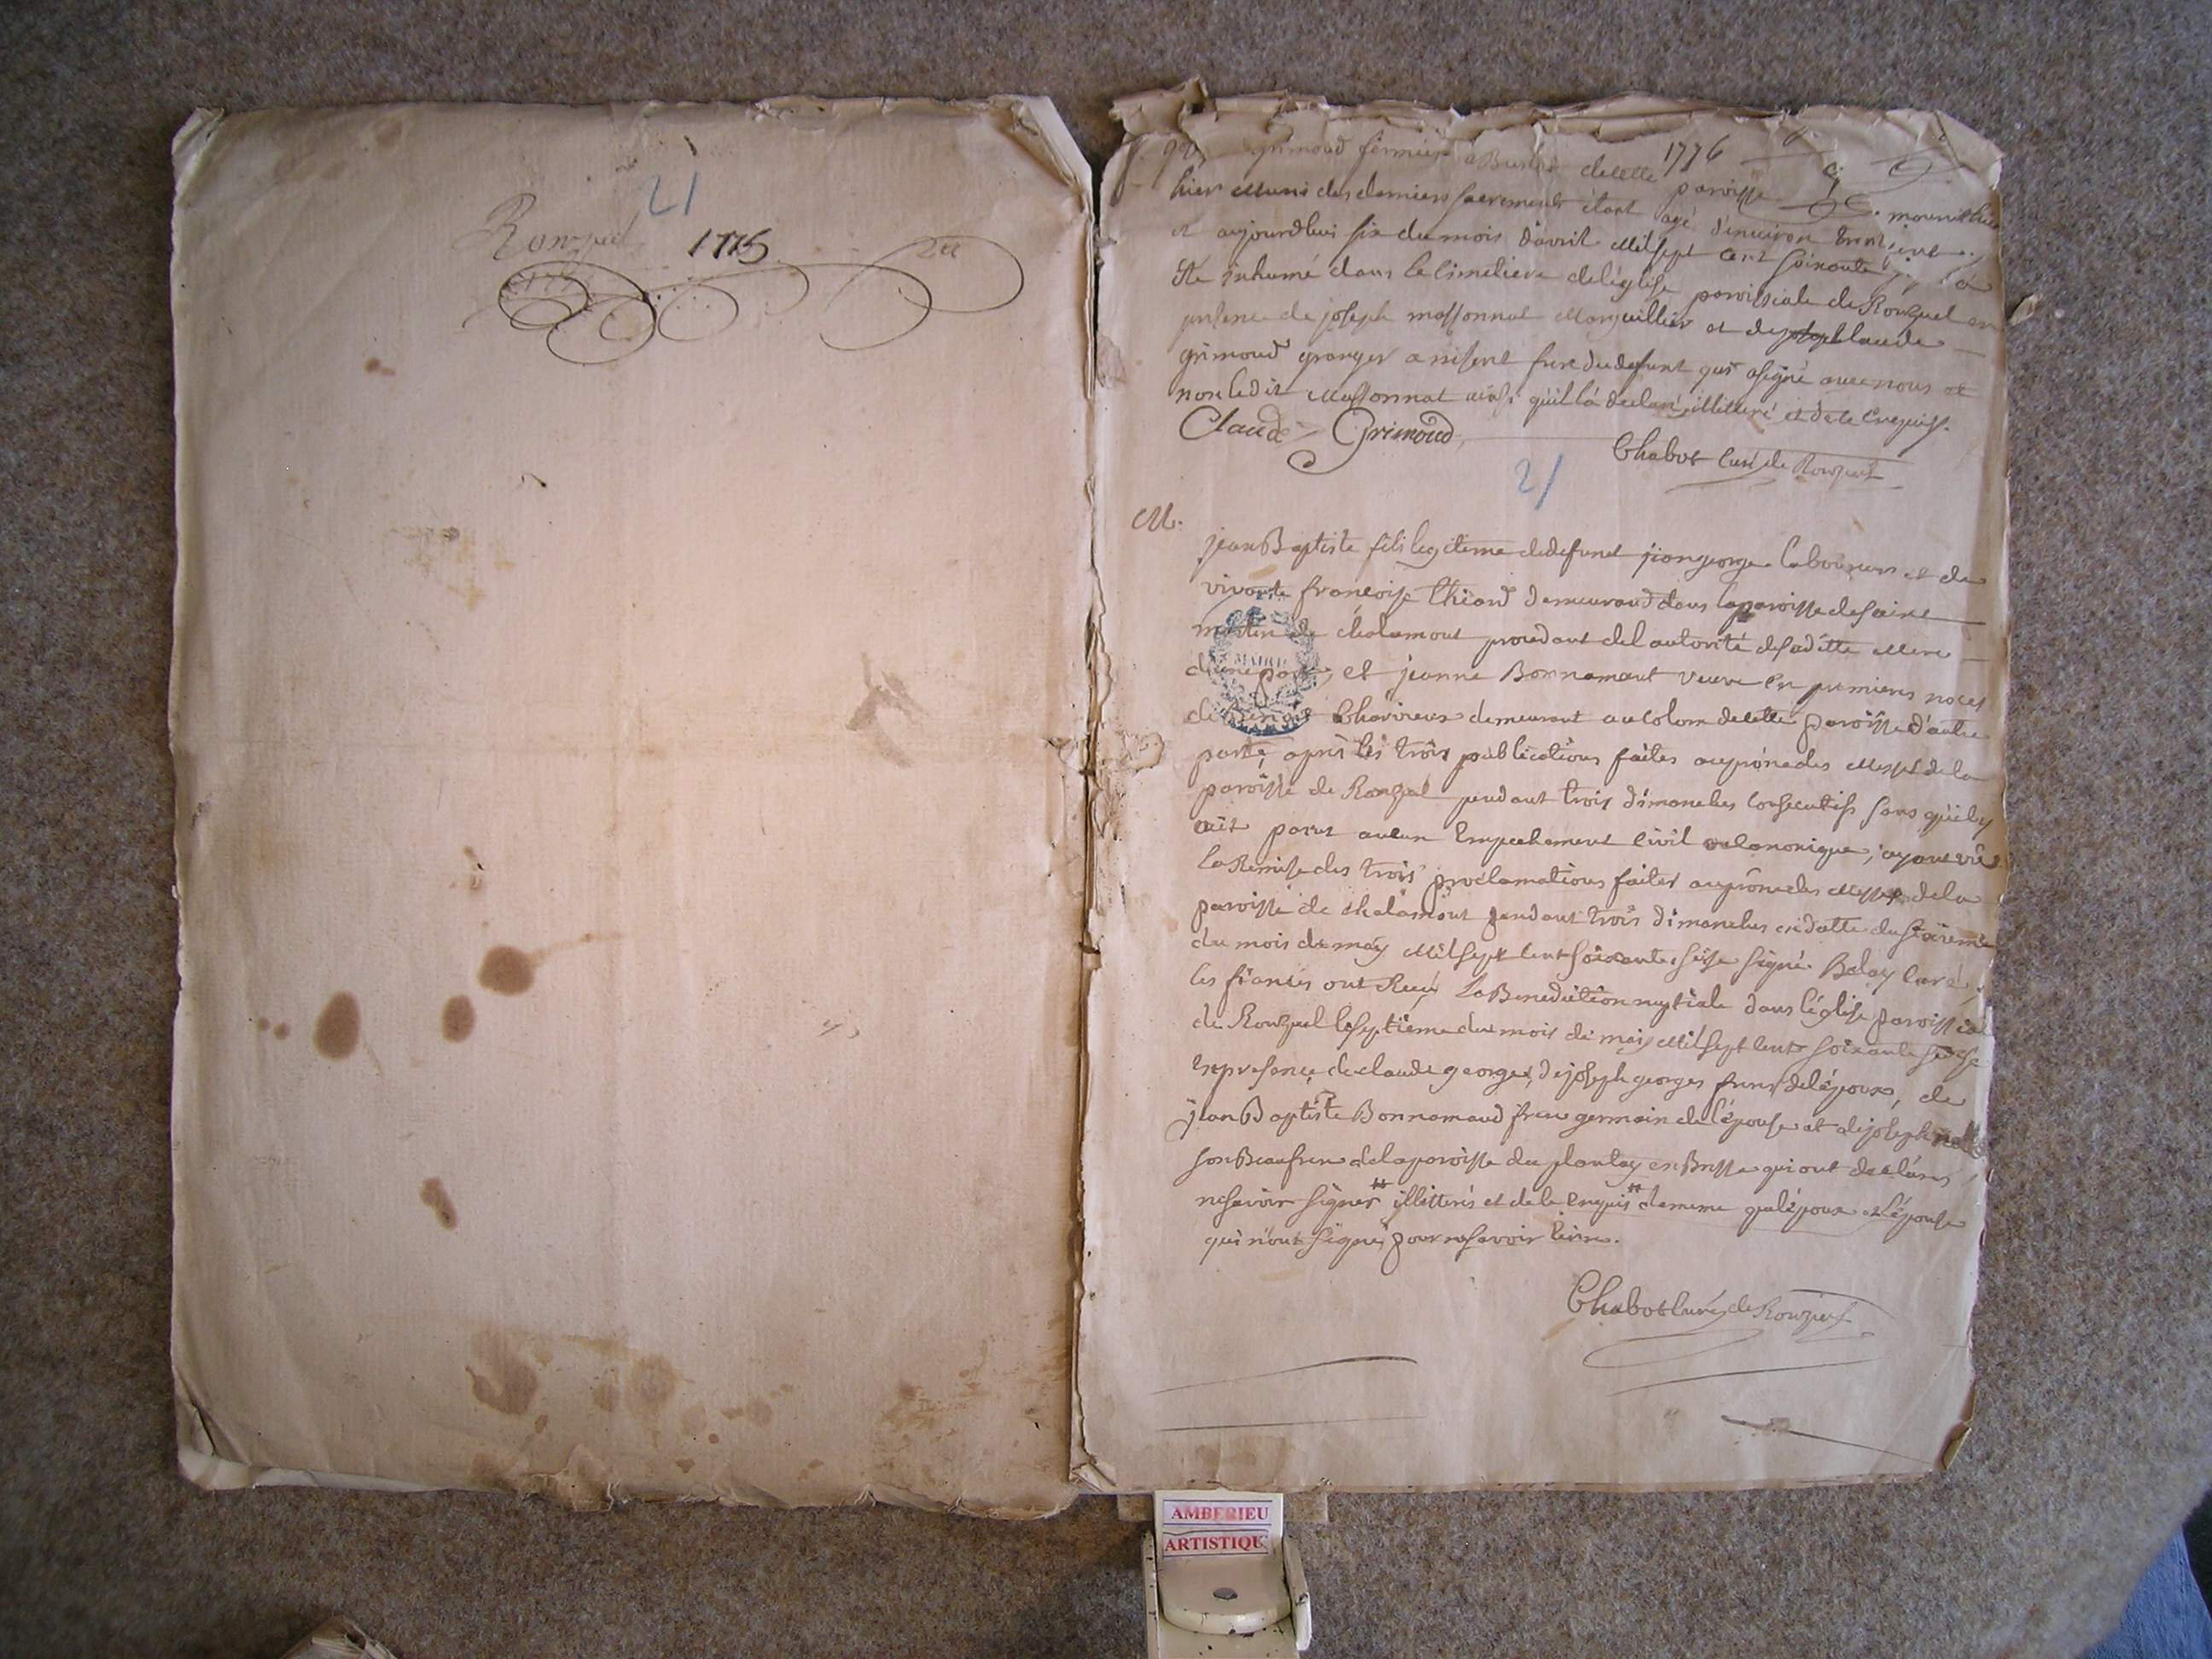 21
Ronzuel 1775
1776
grimoud fermier a de cette paroisse mourut hier
hier muni des derniers sacrements étant agé d'environ
et aujourdhui six du mois d'avril mil sept cent soixante a
été inhumé dans le cimetiere de léglise paroissiale de Ronzuel en
presence de joseph massonnat marguillier et de claude
grimoud granger frere du defunt qui a signé avec nous et
non ledit massonnat ainsi qu'il l'a declaré illitteré et de ce enquis.
Claude Grimoud
Chabot curé de Ronzuel
21
M.
jean Baptiste fils legitime de defunct jean george laboureur et de
vivante françoise thiard demeurand dans la paroisse de saint
martin de chalamont procedant de l autorité de sa ditte mere
d'une part, et jeanne Bonnamant veuve en premieres noces
de Benoit Charvieux demeurant au colom de cette paroisse d'autre
part, apres les trois publications faites au prône des messes de la
paroisse de Ronzuel pendant trois dimanches consecutifs sans qu'il y
ait parut aucun Empechement civil ou canonique, ayant vû
la Remise des trois proclamations faites au prône des messes de la
paroisse de chalamont pendant trois dimanches en datte du sixieme
du mois de may mil sept cent soixante seise signé Belay curé,
les fiancés ont Reçu La Benediction nuptiale dans l'église paroissiale
de Ronzuel le septieme du mois de may mil sept cent soixante seise
en presence de claude georges, de joseph georges freres de lépoux, de
jean Baptiste Bonnamand frere germain de lépouse et de joseph
son Beaufrere de la paroisse du plantay en Bresse qui ont declarés
ne savoir signer illitterés et de ce enquis de meme que lépoux et lépouse
qui n'ont signé pour ne savoir ecrire.
Chabot curé de Ronzuel
MAIRIE
AMBERIEU
ARTISTIQU